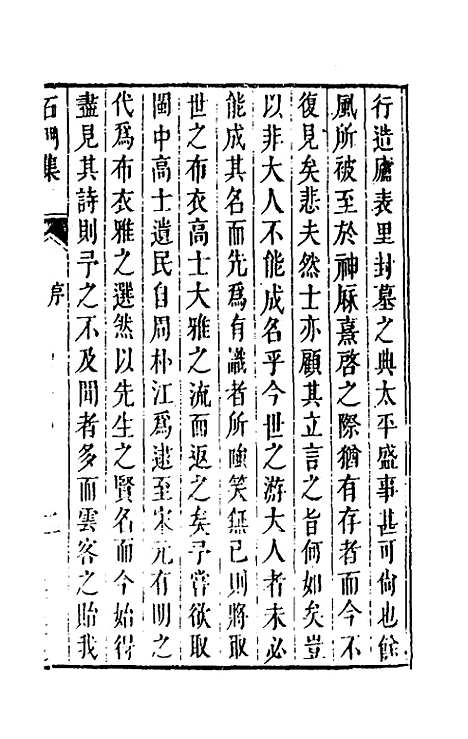 行造廬表里封墓之典太平盛事甚可尚也餘
風所被至於神厤熹啓之際猶有存者而今不
復見矣悲夫然士亦顧其立言之旨何如矣豈
以非大人不能成名乎今世之游大人者未必
能成其名而先爲有識者所嗤笑無已則將取
世之布衣高士大雅之流而返之矣予嘗欲取
閩中高士遺民自周朴江爲逮至宋元有明之
代爲布衣雅之選然以先生之賢名而今始得
盡見其詩則予之不及聞者多而雲客之貽我
石門集
序
二